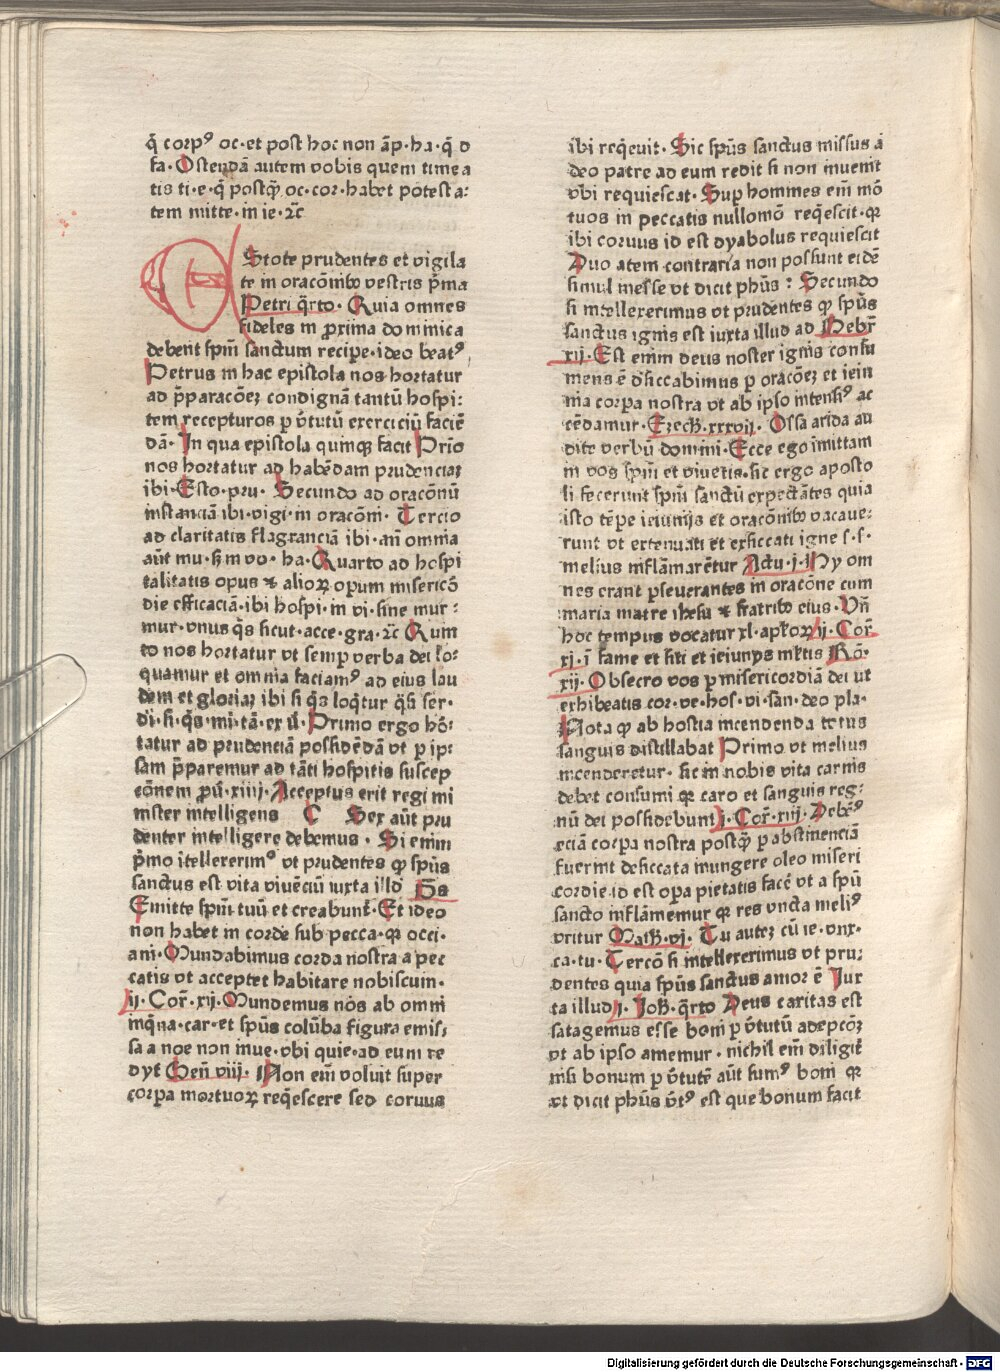 q̄ corpꝰ oc·et post hoc non āp·ha·q̄ d
fa·Ostendā autem vobis quem timea
tis ti·e·q̄ postq̄ƺ oc·cor·habet potesta:
tem mitte·in ie·ꝛc̄
Estote prudentes et vigila
te in oracōnibꝰ vestris pͥma
Petri q̄rto·Quia omnes
fideles in ꝓxima dominica
debent spm̄ sanctum recipe·ideo beatꝰ
Petrus in hac epistola nos hortatur
ad p̄paracōeƺ condignā tantū hospi:
tem recepturos ꝑ v̄tutū exerciciū faciē
dā·In qua epistola quinqƺ facit Primo
nos hortatur ad habēdam prudenciaƺ
ibi·Esto·pru· Secundo ad oracōnū
instanciā ibi·vigi·in oracōni· Tercio
ad claritatis flagranciā ibi·an̄ omnia
aūt mu·ƺm vo·ha·Quarto ad hospi
talitatis opus ⁊ alioꝝ opum misericō
die efficaciā·ibi hospi·in vi·sine mur:
mur·vnus q̄s sicut·acce·gra·ꝛc̄ Quin
to nos hortatur vt semp verba dei lo:
quamur et omnia faciamꝰ ad eius lau
dem et gloriaƺ ibi si q̄s loq̄tur q̄si ser·
di·si·q̄s·mi·tā·ex il̄·Primo ergo hō:
tatur ad prudenciā possidēdā vt ꝑ ip:
sam p̄paremur ad tāti hospitis suscep
cōnem ꝓū·xiiij·Acceptus erit regi mi
nister intelligens C Sex aūt pru
denter intelligere debemus·Si enim
pͥmo ītellexerimꝰ vt prudentes ꝙ spūs
sanctus est vita viuēciū iuxta illd̄ p̄s
Emitte spm̄·tuū et creabunt̄·Et ideo
non habet in corde sub pecca·qƺ occi·
ani·Mundabimus corda nostra a pec
catis vt acceptet habitare nobiscum·
ij·Cor̄·xij·Mundemus nos ab omni
inq̄na·car·et spūs colūba figura emis:
sa a noe non inue·vbi quie·ad eum re
dyt Gen̄ viij· Non em̄ voluit super
corpa mortuoꝝ req̄escere sed coruus
ibi req̄euit·Sic spūs sanctus missus a
deo patre ad eum redit si non inuenit
vbi requiescat·Sup homines em̄ mō
tuos in peccatis nullomō req̄escit·qƺ
ibi coruus id est dyabolus requiescit
Duo atem contraria non possunt eidē
simul inesse vt dicit phūs: Secundo
si intellexerimus vt prudentes ꝙ spūs
sanctus ignis est iuxta illud ad Hebr̄
xij·Est enim deus noster ignis consu
mens ē dsiccabimus ꝑ oracōeƺ et iein
nia corpa nostra vt ab ipso intensiꝰ ac
cēdamur·Ezech̄·xxxvij· Ossa arida au
dite verbū domini·Ecce ego imittam
in vos spm̄ et viuetis·sic ergo aposto
li fecerunt spm̄ sanctū expectātes quia
isto tēpe ieiunijs et oracōnibꝰ vacaue:
runt vt extenuati et exsiccati igne s·s·
melius inflāmarētur Actu·j·Hy om
nes erant ꝑseuerantes in oracōne cum
maria matre ihesu ⁊ fratribꝰ eius·Vn̄
hoc tempus vocatur xl·apl̄oꝝ ij·Cor̄
xj·ī fame et siti et ieiunys ml̄tis Rō·
xij·Obsecro vos ꝑ misericordiā dei ut
exhibeatis cor·ve·hos·vi·san·deo pla·
Nota ꝙ ab hostia incendenda totus
sanguis distillabat Primo vt melius
incenderetur·sic in nobis vita carnis
debet consumi qƺ caro et sanguis reg:
nū dei possidebunt j·Cor̄·xiij·Debēꝰ
eciā corpa nostra postq̄ƺ ꝑ abstinenciā
fuerint desiccata inungere oleo miseri
cordie·id est opa pietatis facē vt a spū
sancto inflāmemur qƺ res vncta meliꝰ
vritur Math̄·vj·Tu auteƺ cū ie·vnx·
ca·tu·Tercō si intellexerimus vt pru:
dentes quia spūs sanctus amor ē Iux
ta illud j·Joh̄·q̄rto Deus caritas est
satagemus esse boni ꝑ v̄tutū adepcōƺ
vt ab ipso amemur·nichil em̄ diligit
nisi bonum ꝑ v̄tutē aūt sumꝰ boni qƺ
vt dicit phūs v̄tꝰ est que bonum facit
Digitalisierung gefördert durch die Deutsche Forschungsgemeinschaft - DFG